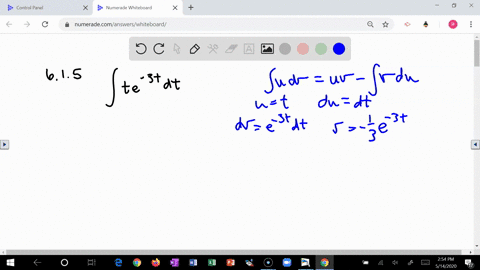 Control Panel
Numerade Whiteboard
numerade.com/answers/whiteboard/
6.1.5 ∫te^{-3t}dt
∫udv = uv - ∫vdu
u = t du = dt
dv = e^{-3t}dt v = -1/3 e^{-3t}
2:54 PM
5/14/2020